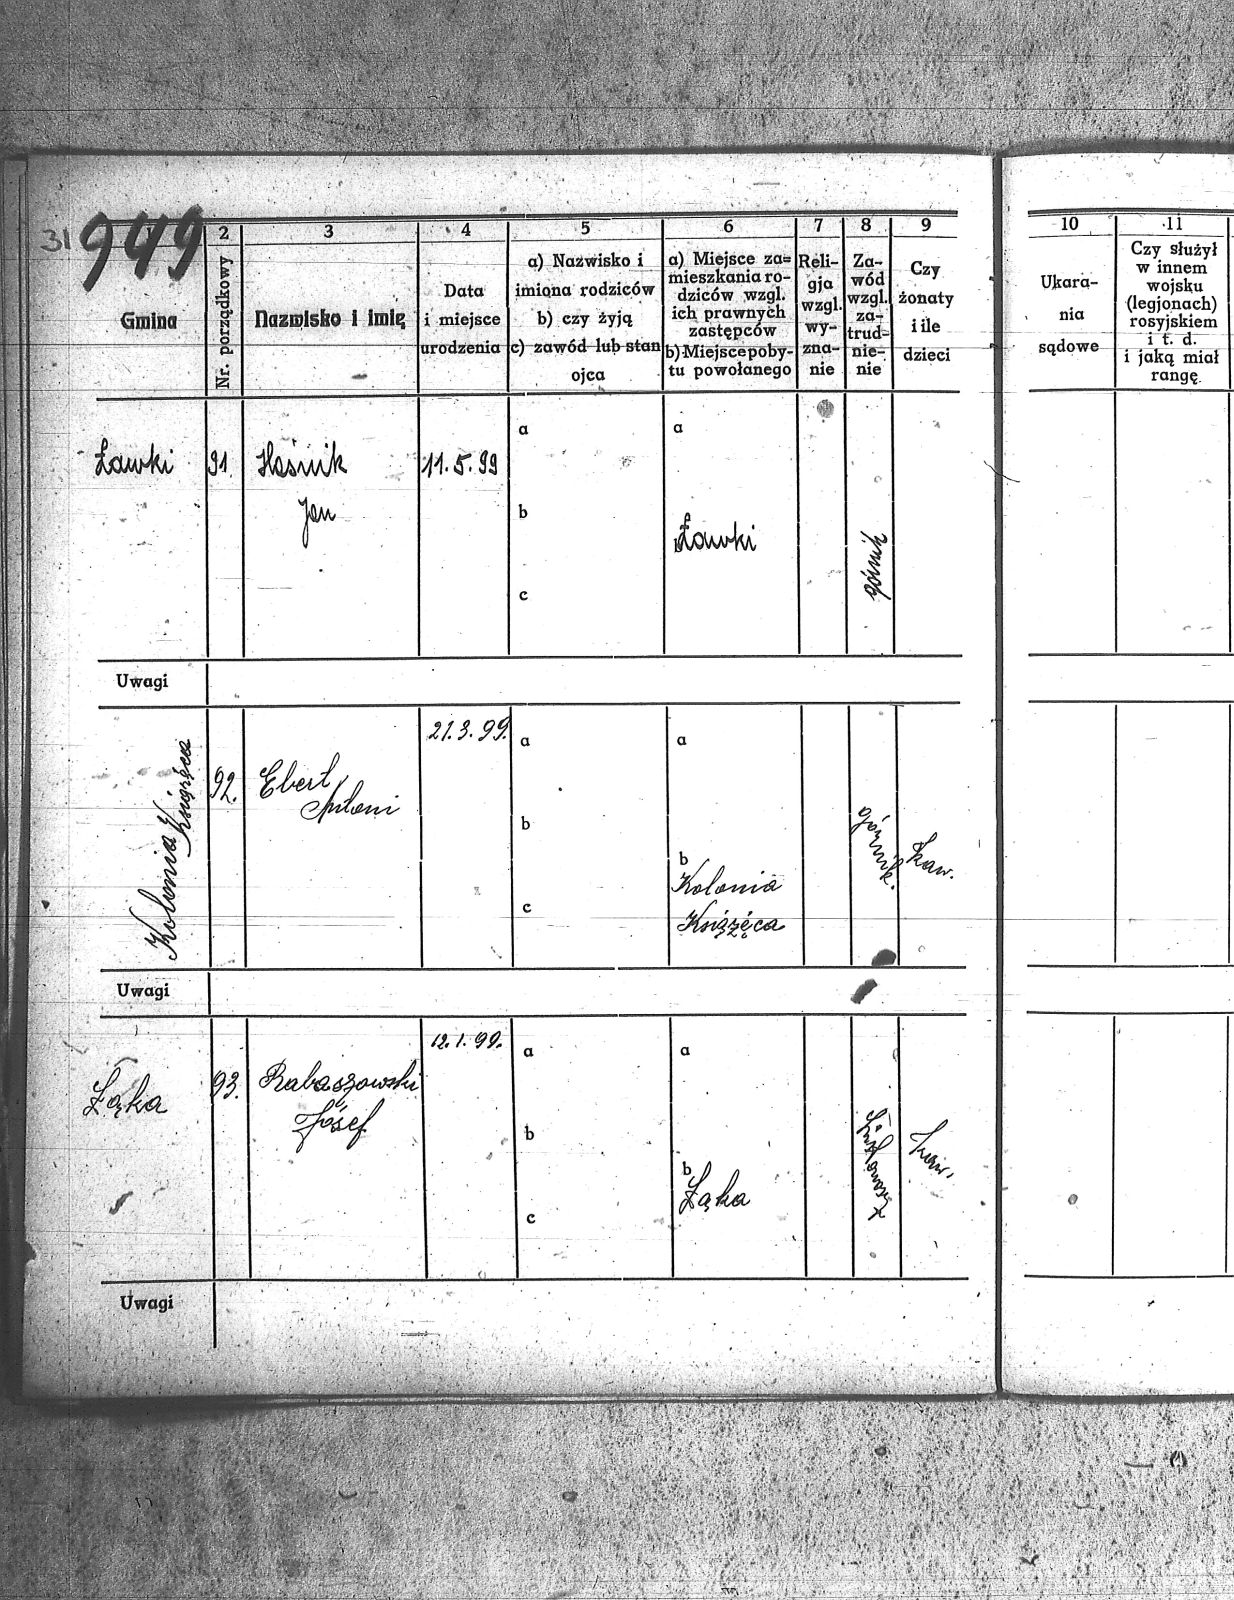 31
949
1
2
3
4
5
6
7
8
9
10
11
Gmina
Nr. porządkowy
Nazwisko i imię
Data
i miejsce
urodzenia
a) Nazwisko i
imiona rodziców
b) czy żyją
c) zawód lub stan
ojca
a) Miejsce za=
mieszkania ro-
dziców wzgl.
ich prawnych
zastępców
b) Miejsce poby-
tu powołanego
Reli-
gja
wzgl.
wy-
zna-
nie
Za-
wód
wzgl.
za-
trud=
nie-
nie
Czy
żonaty
i ile
dzieci
Ukara-
nia
sądowe
Czy służył
w innem
wojsku
(legjonach)
rosyjskiem
i t. d.
i jaką miał
rangę.
Ławki
91
Hośnik
Jan
11.5.99
a
b
c
a
b Ławki
górnik
Uwagi
Kolonia
Książęca
92.
Ebert
Antoni
21.3.99.
a
b
c
a
b
Kolonia
Książęca
górnik.
kaw.
Uwagi
Łąka
93.
Rabaszowski
Józef
12.1.99.
a
b
c
a
b
Łąka
kaw.
Uwagi